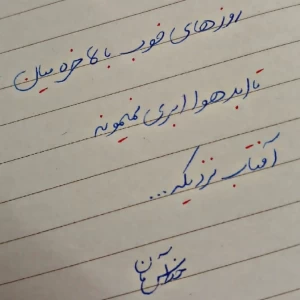 روزهای خوب بالاخره میان
تا ابد هوا ابری نمیمونه
آفتاب نزدیکه...